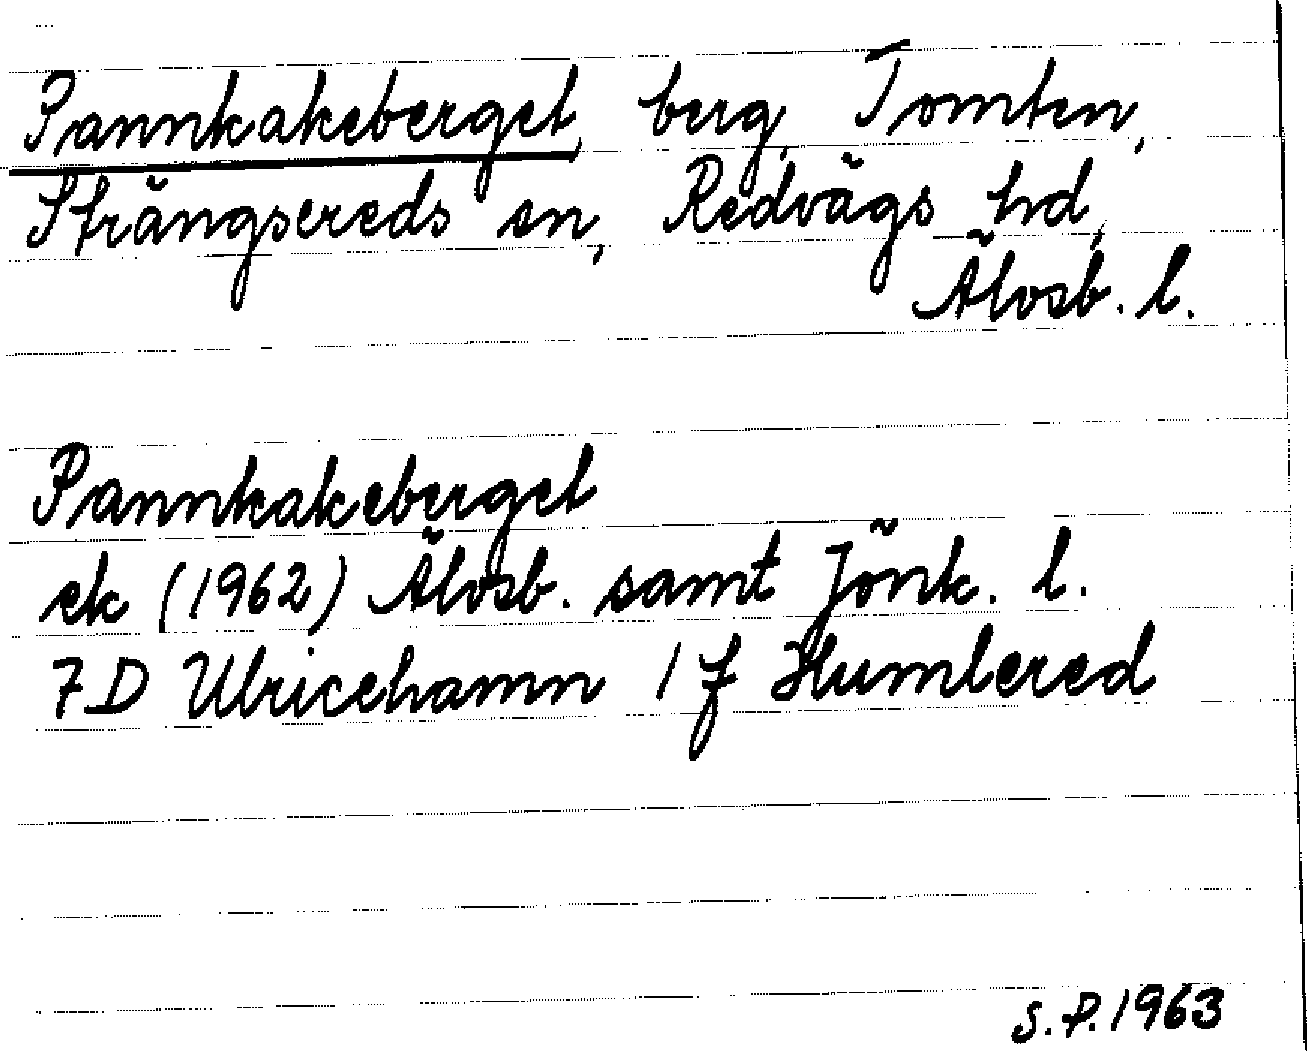 Pannkakeberget, berg, Tomten,
Strängsereds sn, Redvägs hd,
Älvsb. l.
Pannkakeberget
ek (1962) Älvsb. samt Jönk. l.
7D Ulricehamn 1 f Humlered
S.P. 1963